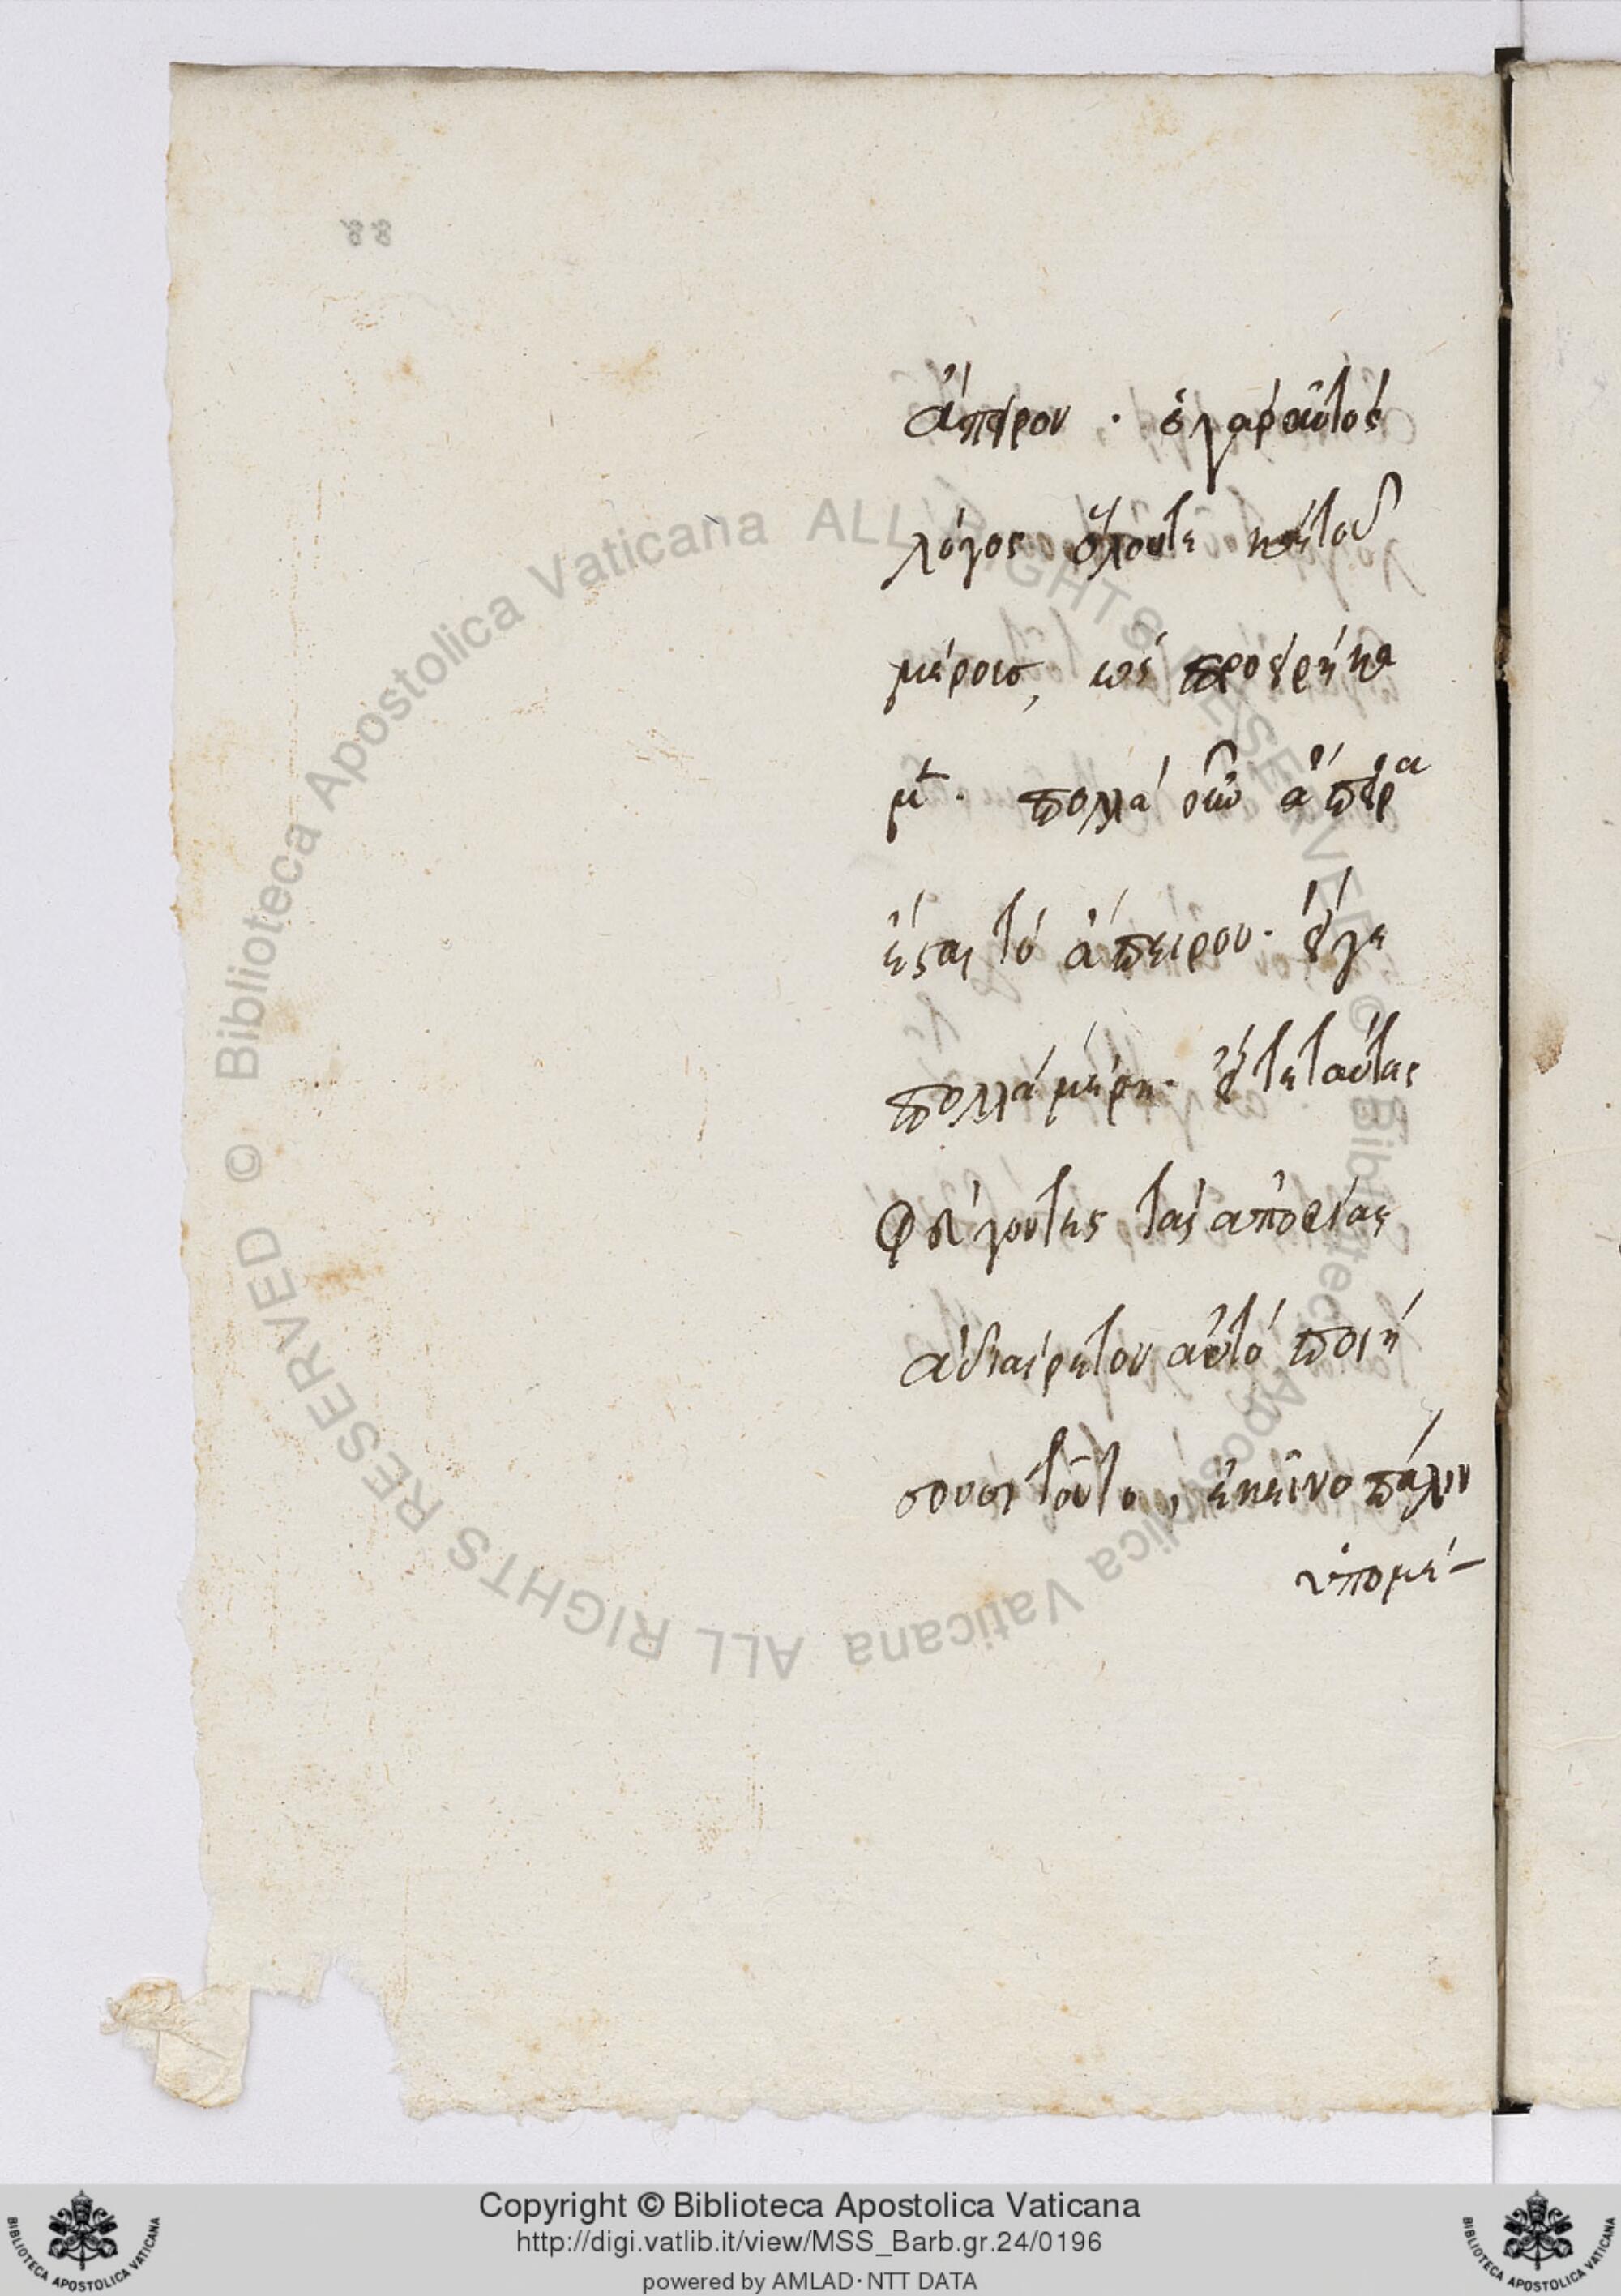 88
ἄπειρον · ὁ γὰρ αὐτὸς
λόγος ὅλου τε καὶ τοῦ
μέρους, ὡς προειρήκα
μ̅ · πολλὰ οὖν ἄπειρα
ἔσται τὸ ἄπειρον · εἴγε
πολλὰ μέρη · εἴτε ταύτας
φεύγοντες τὰς ἀπορίας
ἀδιαίρετον αὐτὸ ποιή
σουσι τοῦτο, ἐκεῖνο πάλιν
ὑπομέ-
© Biblioteca Apostolica Vaticana ALL RIGHTS RESERVED © Biblioteca Apostolica Vaticana ALL RIGHTS RESERVED
Copyright © Biblioteca Apostolica Vaticana
http://digi.vatlib.it/view/MSS_Barb.gr.24/0196
powered by AMLAD·NTT DATA
BIBLIOTECA APOSTOLICA VATICANA
BIBLIOTECA APOSTOLICA VATICANA